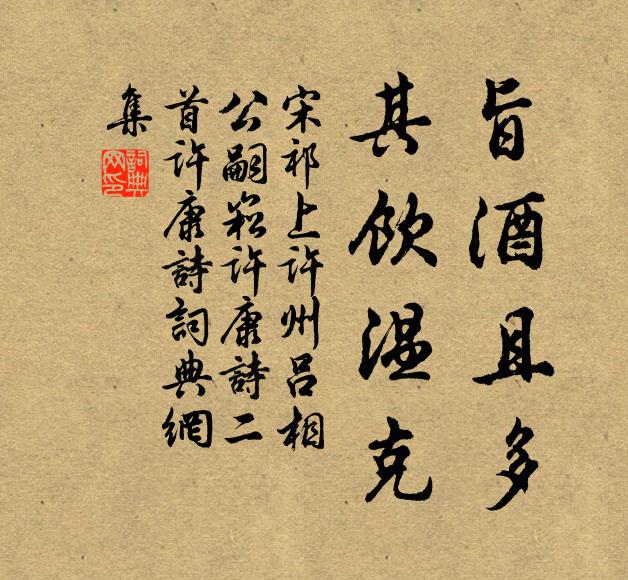 旨酒且多
其飲溫克
宋祁上許州呂相
公嗣崧許康詩二
首許康詩詞典網
集
詞典
网印